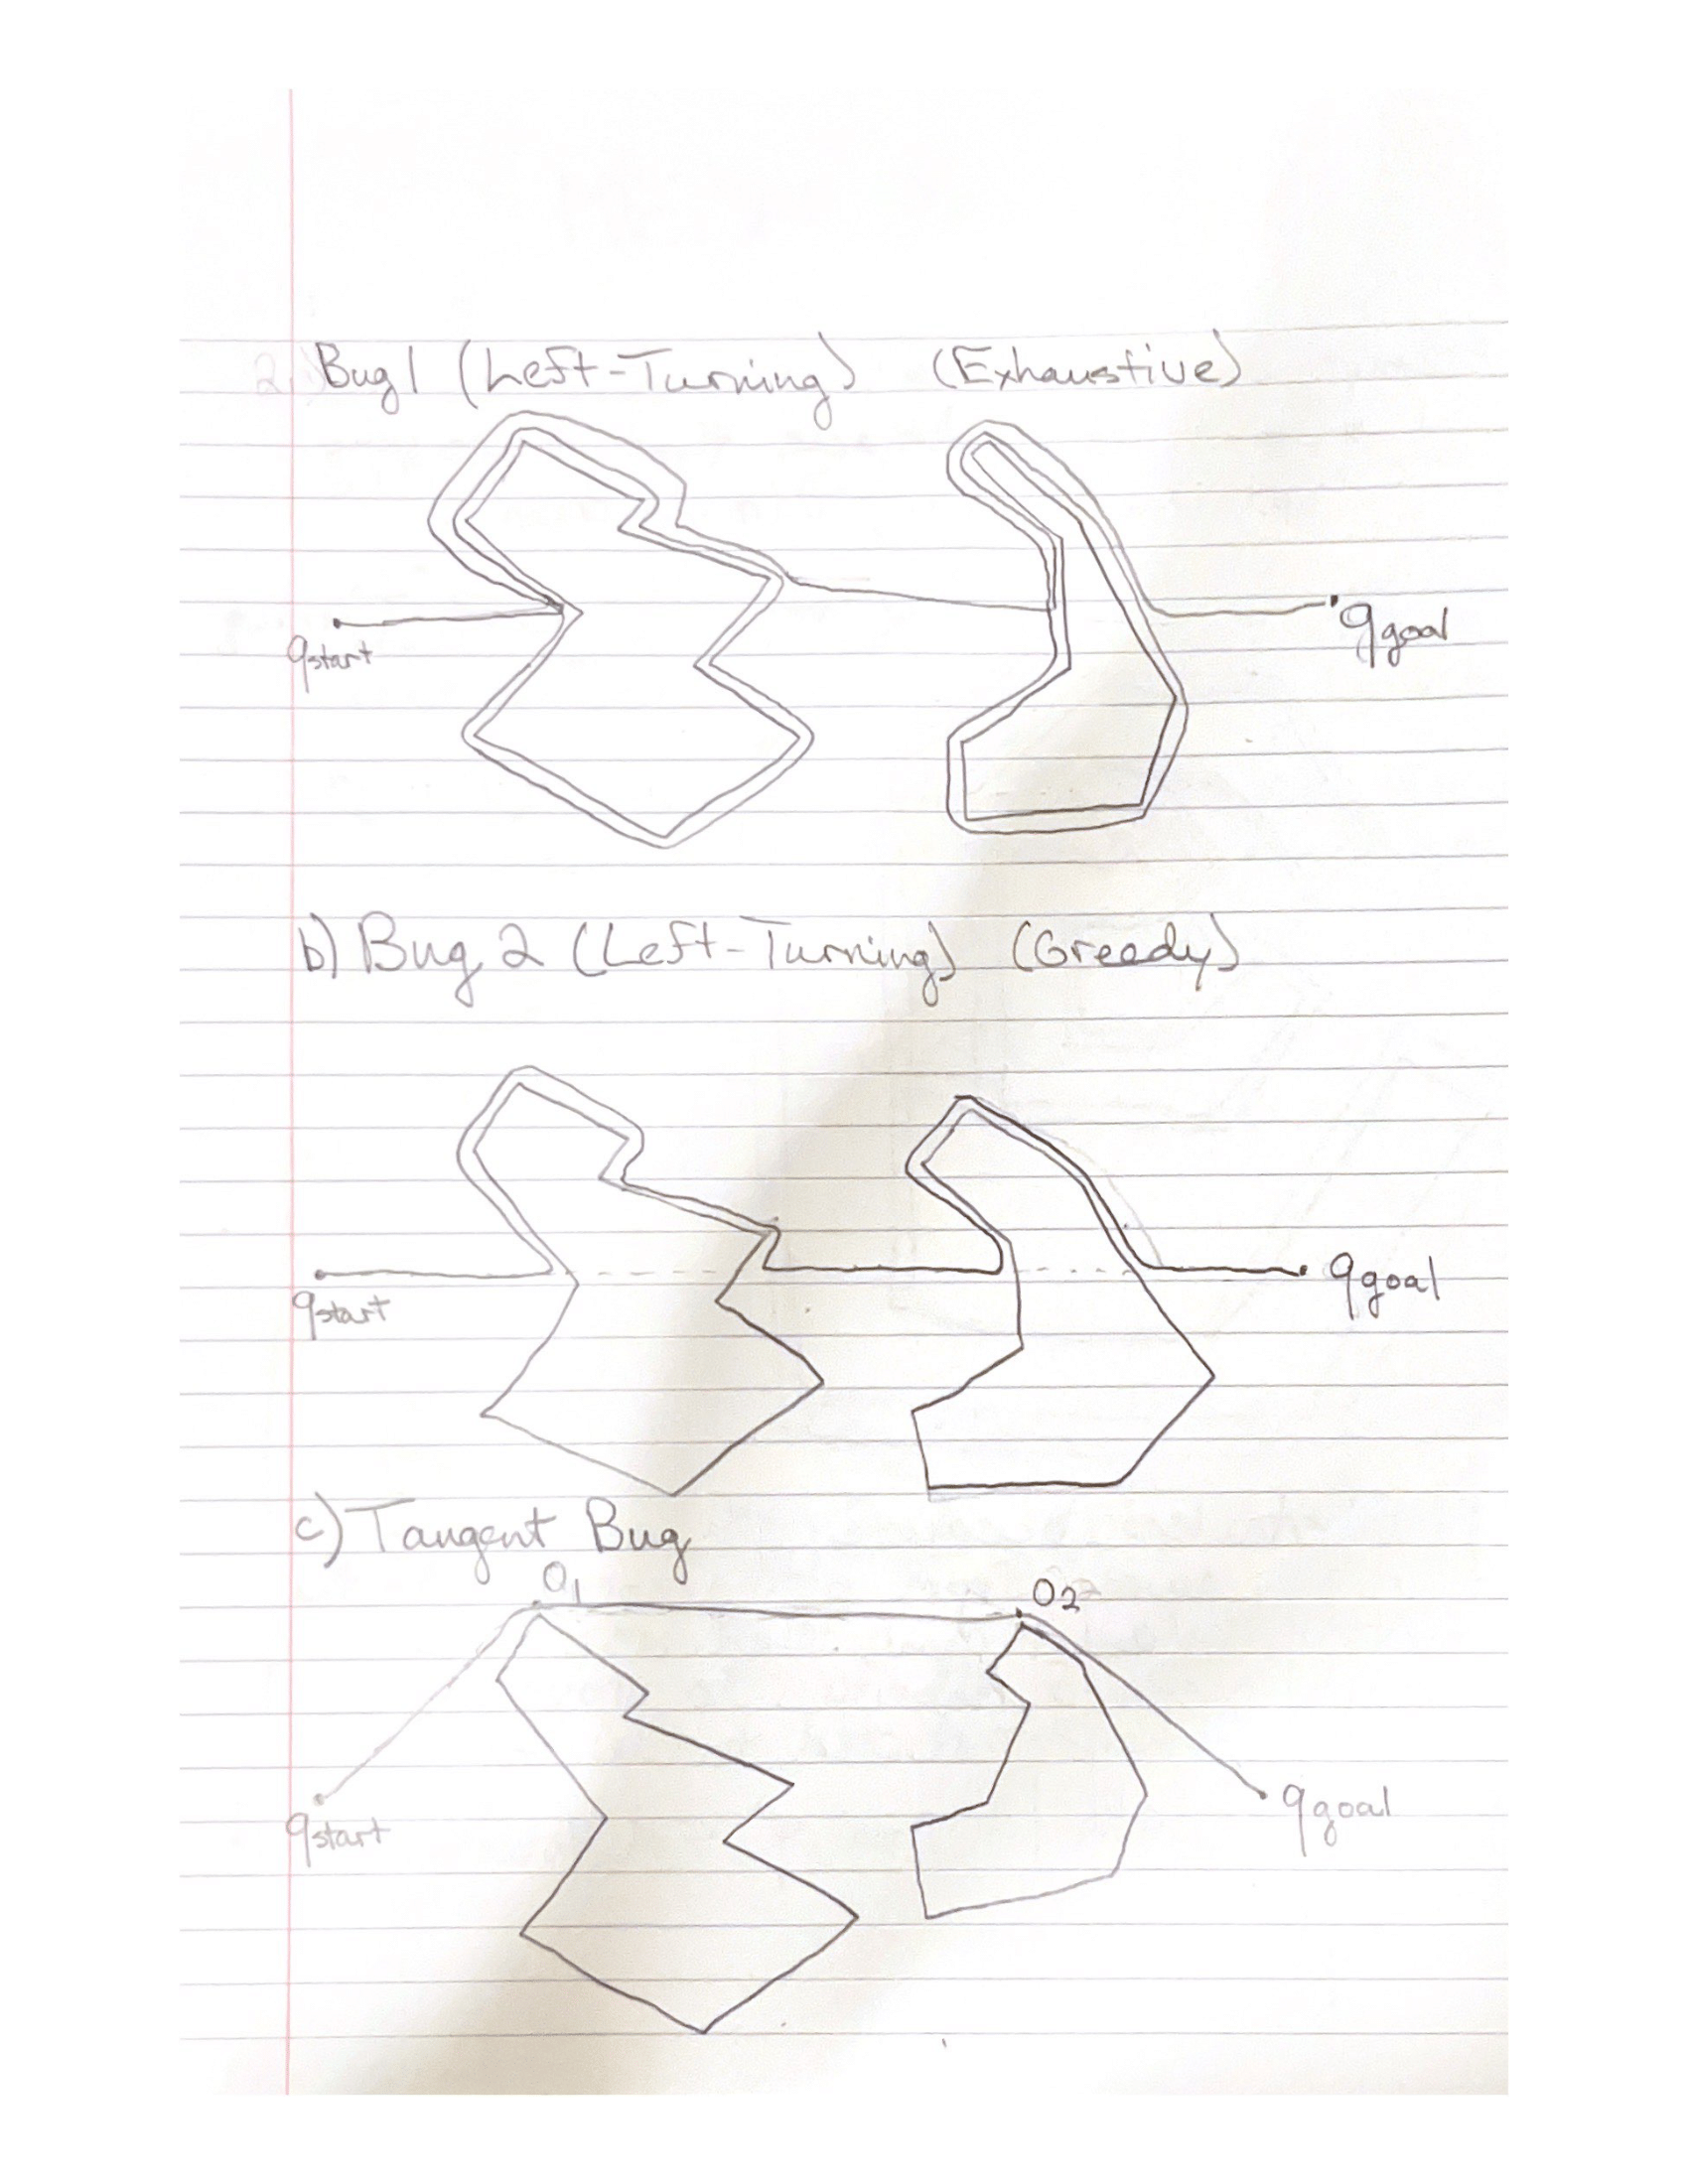 2. Bug 1 (Left-Turning) (Exhaustive)
qstart
qgoal
b) Bug 2 (Left-Turning) (Greedy)
qstart
qgoal
c) Tangent Bug
O1
O2
qstart
qgoal